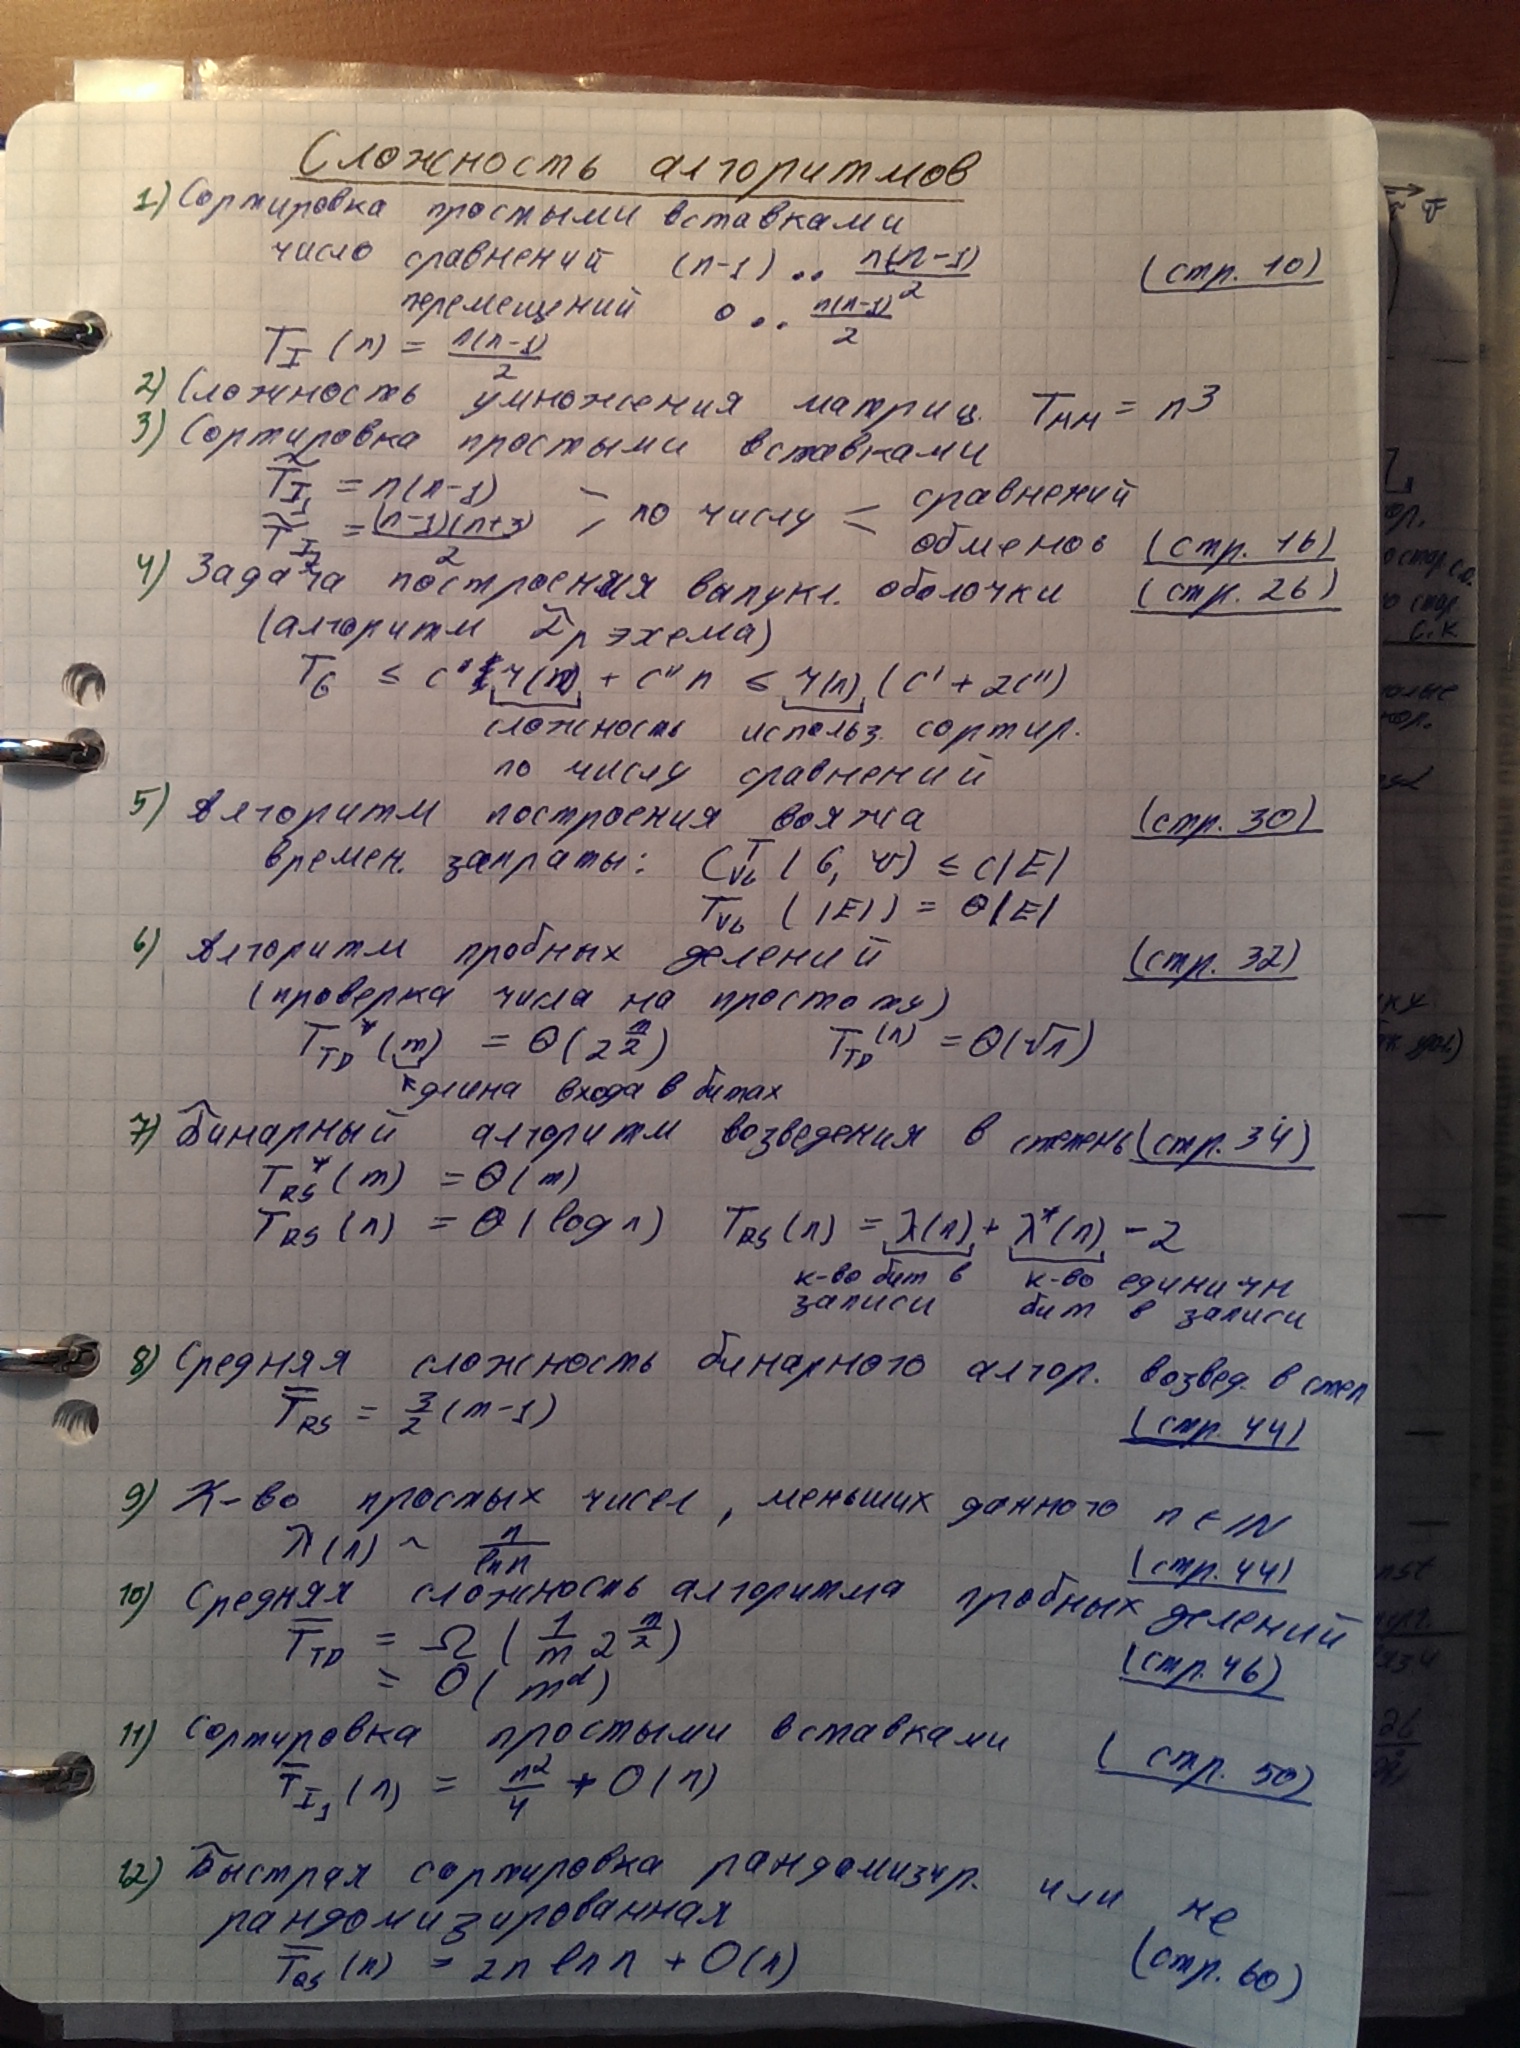 Сложность алгоритмов
1) Сортировка простыми вставками
число сравнений (n-1) .. n(n-1)/2 (стр. 10)
перемещений 0 .. n(n-1)/2
T_I (n) = n(n-1)/2
2) Сложность умножения матриц. T_MM = n^3
3) Сортировка простыми вставками
T̃_I₁ = n(n-1) > по числу < сравнений
T̃_I₂ = (n-1)(n+3)/2 обменов (стр. 16)
4) Задача построения выпукл. оболочки (стр. 26)
(алгоритм Грэхема)
T_G ≤ c' τ(n) + c'' n ≤ τ(n) (c' + 2c'')
сложность использ. сортир.
по числу сравнений
5) Алгоритм построения вояжа (стр. 30)
времен. затраты: C^T_Vb (G, v) ≤ c|E|
T_Vb (|E|) = Θ|E|
6) Алгоритм пробных делений (стр. 32)
(проверка числа на простоту)
T_TD^*(m) = Θ(2^(m/2)) T_TD(n) = Θ(√n)
длина входа в битах
7) Бинарный алгоритм возведения в степень (стр. 34)
T_RS^*(m) = Θ(m)
T_RS(n) = Θ(log n) T_RS(n) = λ(n) + λ^*(n) - 2
к-во бит в к-во единичн
записи бит в записи
8) Средняя сложность бинарного алгор. возвед. в степ
T̿_RS = 3/2 (m-1) (стр. 44)
9) К-во простых чисел, меньших данного n ∈ ℕ
(n) ~ n/ln n (стр. 44)
10) Средняя сложность алгоритма пробных делений
T̿_TD = Ω(1/m 2^(m/2)) (стр. 46)
= O(m^d)
11) Сортировка простыми вставками (стр. 50)
T̿_I₁(n) = n²/4 + O(n)
12) Быстрая сортировка рандомизир. или не
рандомизированная
T̿_QS(n) = 2n ln n + O(n) (стр. 60)